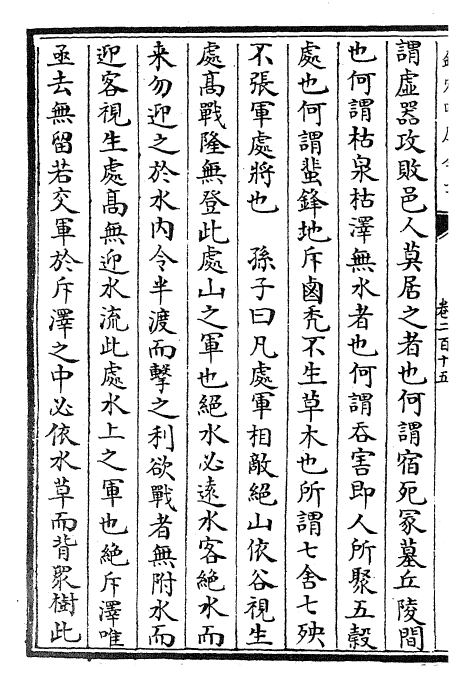 卷二百十五
謂虛器攻敗邑人莫居之者也何謂宿死冢墓丘陵間
也何謂枯泉枯澤無水者也何謂吞害即人所聚五穀
處也何謂蜚鋒地斥鹵秃不生草木也所謂七舍七殃
不張軍處將也　孫子曰凡處軍相敵絕山依谷視生
處髙戰隆無登此處山之軍也絕水必逺水客絕水而
来勿迎之於水内令半渡而擊之利欲戰者無附水而
迎客視生處髙無迎水流此處水上之軍也絕斥澤唯
亟去無留若交軍於斥澤之中必依水草而背衆樹此